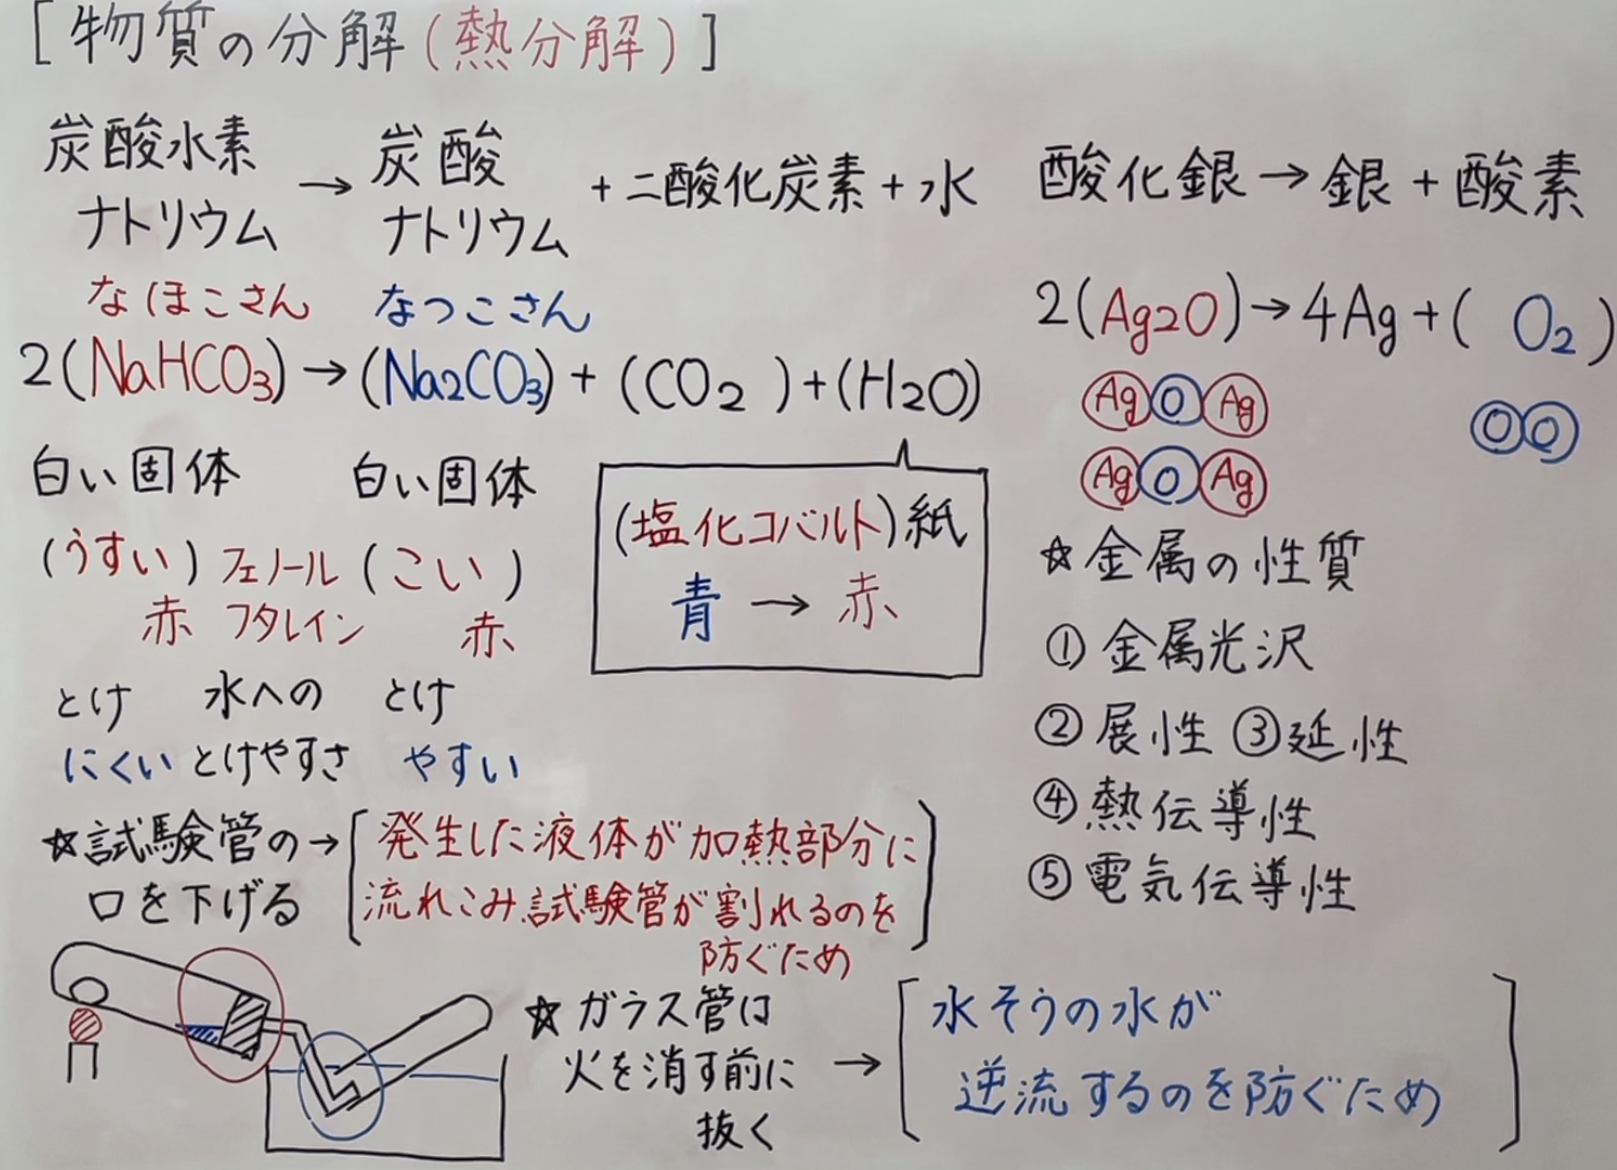 [物質の分解(熱分解)]
炭酸水素ナトリウム → 炭酸ナトリウム + 二酸化炭素 + 水
なほこさん なつこさん
2(NaHCO3) → (Na2CO3) + (CO2) + (H2O)
白い固体 白い固体
(うすい) フェノール (こい)
赤 フタレイン 赤
とけ 水への とけ
にくい とけやすさ やすい
(塩化コバルト)紙
青 → 赤
☆試験管の →[発生した液体が加熱部分に
口を下げる 流れこみ試験管が割れるのを
防ぐため]
☆ガラス管は
火を消す前に →
抜く
[水そうの水が
逆流するのを防ぐため]
酸化銀 → 銀 + 酸素
2(Ag2O) → 4Ag + (O2)
Ag O Ag O O
Ag O Ag
☆金属の性質
① 金属光沢
② 展性 ③ 延性
④ 熱伝導性
⑤ 電気伝導性